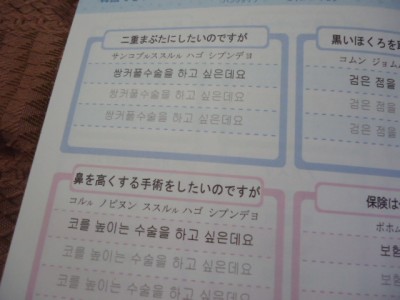 二重まぶたにしたいのですが
サンコプルススルル ハゴ シプンデヨ
쌍커풀수술을 하고 싶은데요
쌍커풀수술을 하고 싶은데요
쌍커풀수술을 하고 싶은데요
黒いほくろを
コムン ジョム
검은 점을
검은 점을
검은 점을
鼻を高くする手術をしたいのですが
コルル ノピヌン ススルル ハゴ シプンデヨ
코를 높이는 수술을 하고 싶은데요
코를 높이는 수술을 하고 싶은데요
코를 높이는 수술을 하고 싶은데요
保険は
ボホム
보험
보험